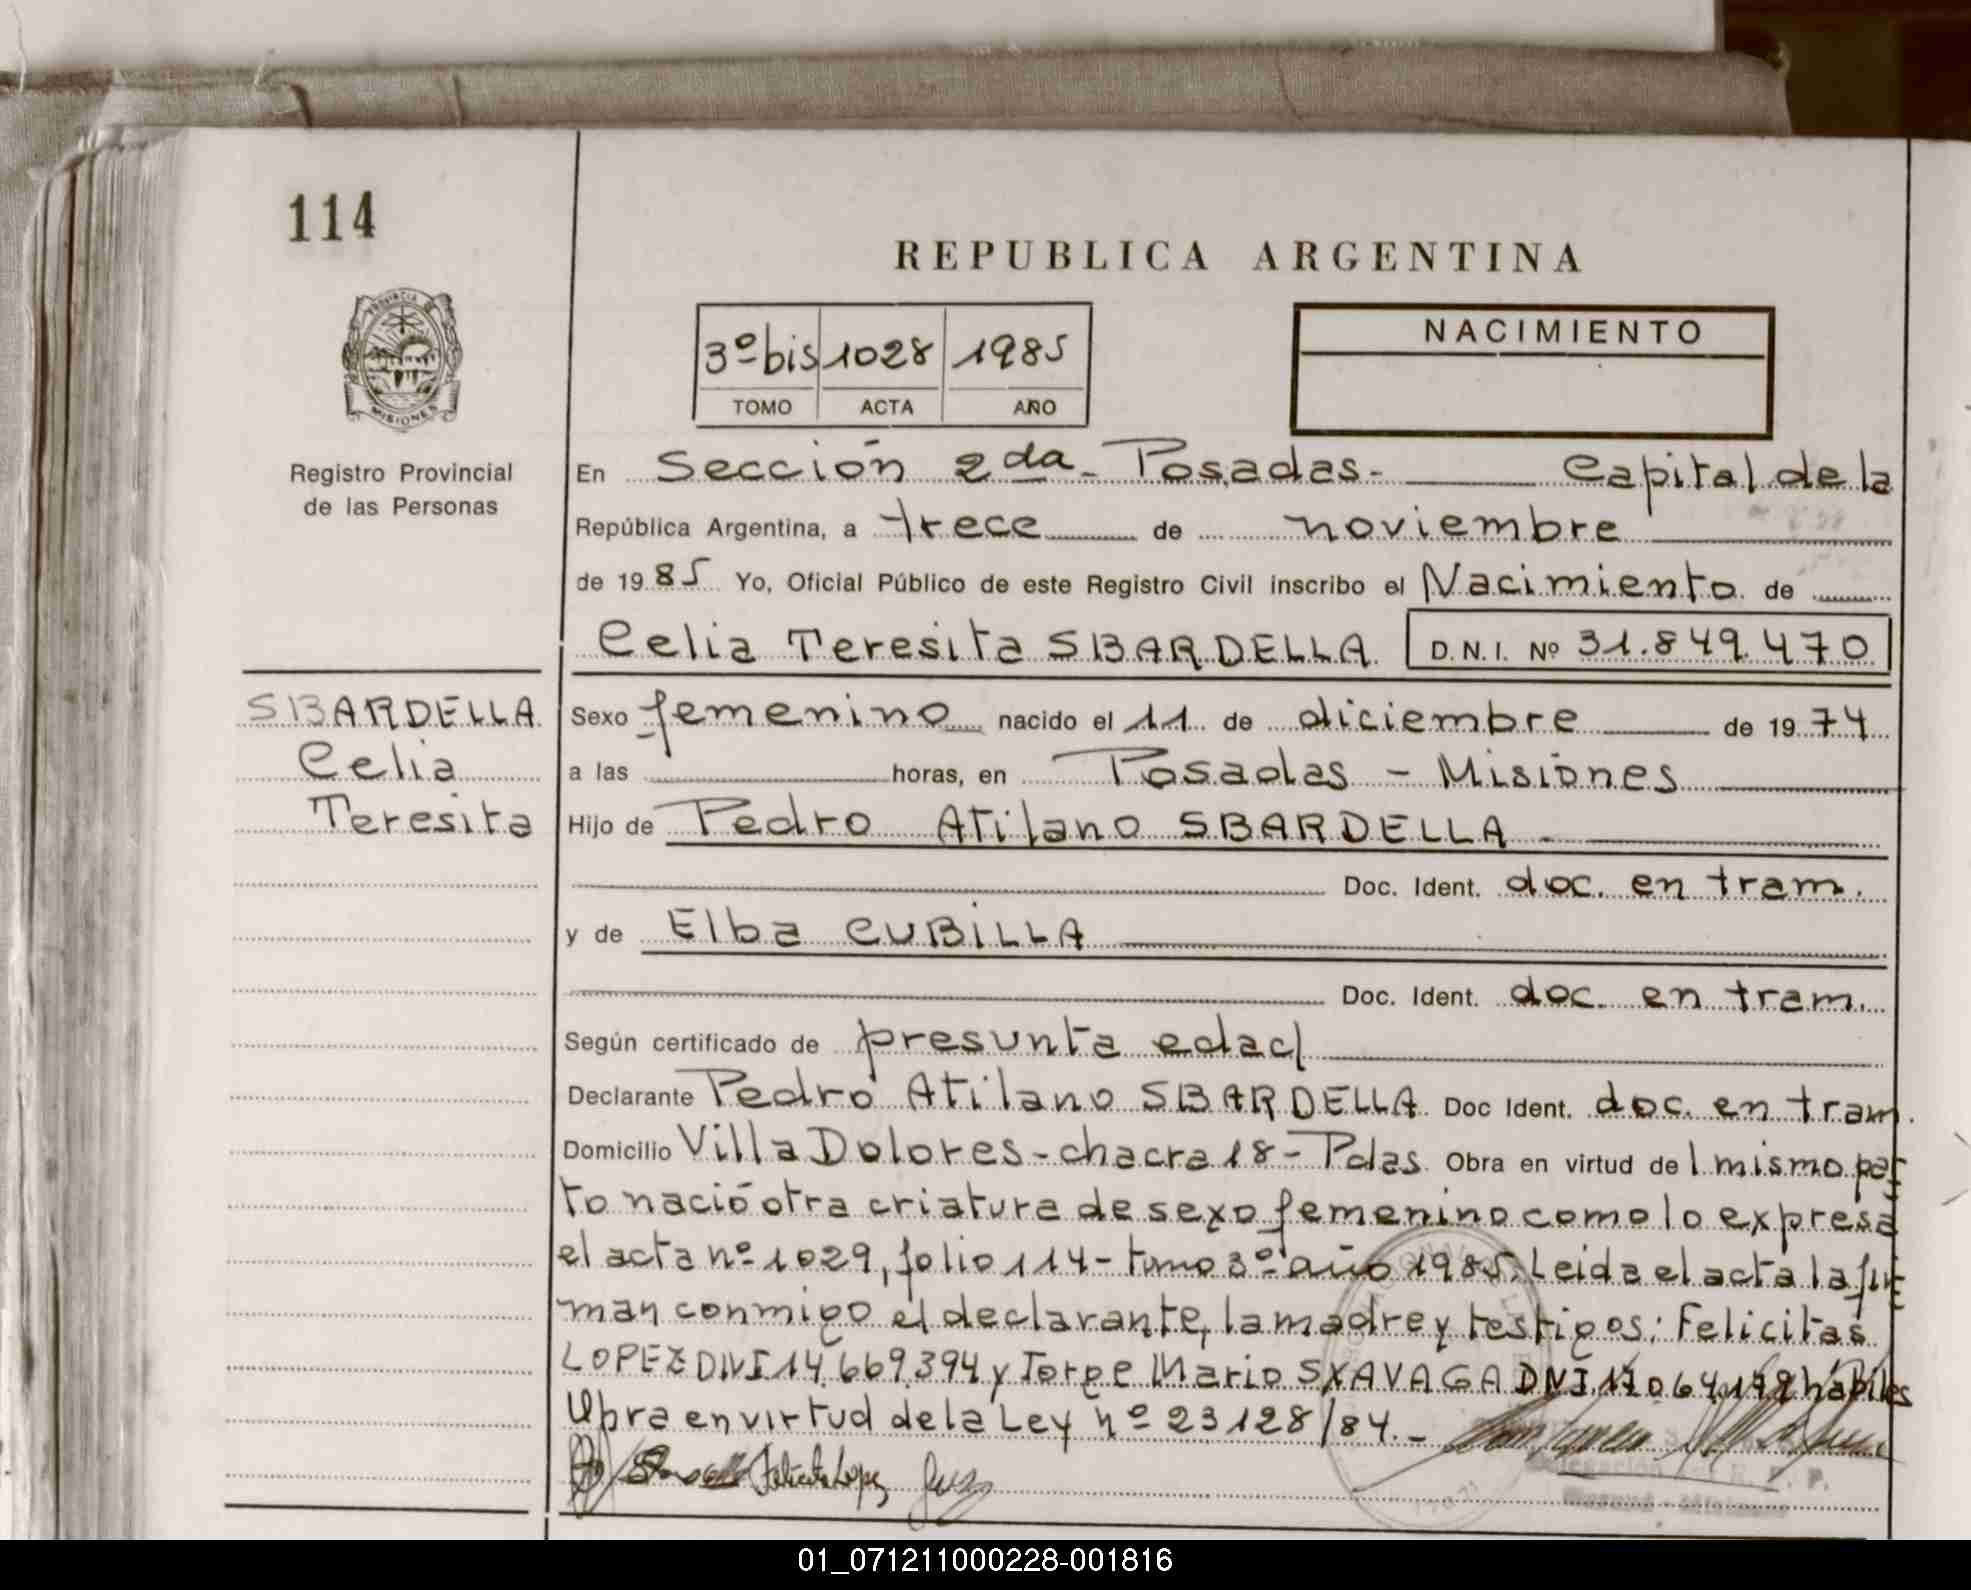 114
REPUBLICA ARGENTINA
PROVINCIA DE
MISIONES
3º bis 1028 1985
TOMO ACTA AÑO
NACIMIENTO
Registro Provincial
de las Personas
En Sección 2da - Posadas - Capital de la
República Argentina, a trece de noviembre
de 1985 Yo, Oficial Público de este Registro Civil inscribo el Nacimiento de
Celia Teresita SBARDELLA D.N.I. Nº 31.849.470
SBARDELLA
Celia
Teresita
Sexo femenino nacido el 11 de diciembre de 1974
a las horas, en Posadas - Misiones
Hijo de Pedro Atilano SBARDELLA
Doc. Ident. doc. en tram.
y de Elba CUBILLA
Doc. Ident. doc. en tram.
Según certificado de presunta edad
Declarante Pedro Atilano SBARDELLA Doc Ident. doc. en tram.
Domicilio Villa Dolores - chacra 18 - Pdas. Obra en virtud de l mismo par
to nació otra criatura de sexo femenino como lo expresa
el acta nº 1029, folio 114 - tomo 3º año 1985. Leida el acta la fir
man conmigo el declarante, la madre y testigos: Felicitas
LOPEZ DNI 14.669.394 y Jorge Mario SXAVAGA DNI hábiles
Obra en virtud de la Ley nº 23128/84.-
Felicita Lopez
01_071211000228-001816